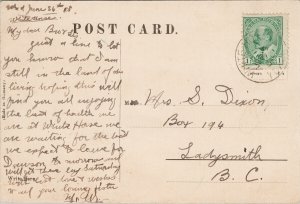 June 26th 08.
Whitehorse
POST CARD.
My dear
Just a line to let
you know that I am
still in the land of the
living hoping this will
find you all enjoying
the best of health we
are at White Horse we
are waiting for the boat
we expect to leave for
Dawson to morrow and
will get there by Saturday
love & wishes
your loving sister
Mrs S. Dixon
Box 194
Ladysmith
B. C.